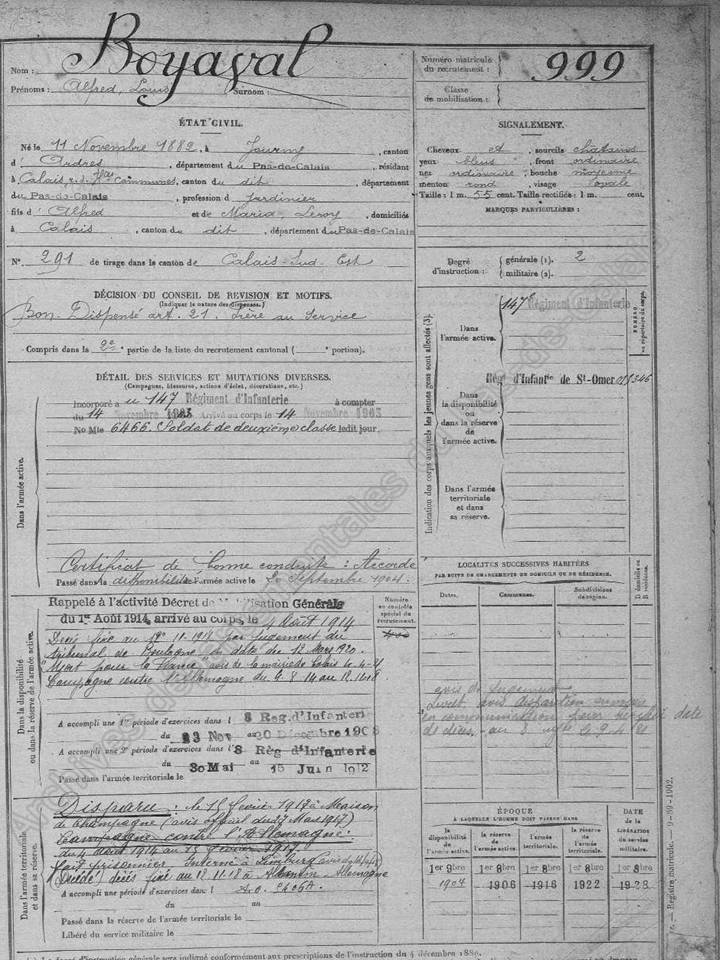 Nom : Boyaval
Prénoms : Alfred, Louis Surnom :
Numéro matricule du recrutement : 999
Classe de mobilisation :
ÉTAT CIVIL.
Né le 11 Novembre 1882, à Journy, canton
d'Ardres, département du Pas-de-Calais, résidant
à Calais, Communes, canton du dit, département
du Pas-de-Calais, profession d Jardinier
fils d'Alfred et de Maria Leroy, domiciliés
à Calais, canton du dit, département du Pas-de-Calais
N° 291 de tirage dans le canton de Calais-Sud-Est
SIGNALEMENT.
Cheveux et sourcils châtains
yeux bleus, front ordinaire
nez ordinaire, bouche moyenne
menton rond, visage ovale
Taille : 1 m. 55 cent. Taille rectifiée : 1 m. cent.
MARQUES PARTICULIÈRES :
Degré d'instruction : générale (1). 2
militaire (2).
DÉCISION DU CONSEIL DE REVISION ET MOTIFS.
(Indiquer la nature des dispenses.)
Bon. Dispensé art. 21. frère au Service
Compris dans la 2e partie de la liste du recrutement cantonal ( portion).
DÉTAIL DES SERVICES ET MUTATIONS DIVERSES.
(Campagnes, blessures, actions d'éclat, décorations, etc.)
Dans l'armée active.
Incorporé au 147 Régiment d'Infanterie à compter
du 14 Novembre 1903 Arrivé au corps le 14 Novembre 1903
No Mle 6466. Soldat de deuxième classe ledit jour
Certificat de bonne conduite : Accordé
Passé dans la disponibilité de l'armée active le 20 Septembre 1904.
Indication des corps auxquels les jeunes gens sont affectés (3).
NUMÉRO au répertoire du corps.
Dans l'armée active. 147e Régiment d'Infanterie
Dans la disponibilité ou dans la réserve de l'armée active. Rég. d'Infantie de St-Omer 01346
Dans l'armée territoriale et dans sa réserve.
LOCALITÉS SUCCESSIVES HABITÉES
PAR SUITE DE CHANGEMENTS DE DOMICILE OU DE RÉSIDENCE.
Dates. Communes. Subdivisions de région. D domicile ou R résidence.
Dans la disponibilité ou dans la réserve de l'armée active.
Numéro au contrôle spécial du recrutement.
Rappelé à l'activité Décret de Mobilisation Générale
du 1er Août 1914, arrivé au corps, le 4 Août 1914
Décès fixé au 18.11.1918 par jugement du
tribunal de Boulogne en date du 12 Mars 1920
Mort pour la France avis de la mairie de Calais
Campagne contre l'Allemagne du
A accompli une 1re période d'exercices dans l 8 Reg. d'Infanteri
du 23 Nov au 20 Décembre 1908
A accompli une 2e période d'exercices dans l 8 Règ d'Infanterie
du 30 Mai au 15 Juin 1912
Passé dans l'armée territoriale le
avis de Jugement
avis disparition envoyée
en communication pour
date
Dans l'armée territoriale et dans sa réserve.
Disparu : le 15 février 1917 à Maison
de Champagne (avis officiel du 27 Mars 1917)
Campagne contre l'Allemagne :
du 4 août 1914 au 15 février 1917.
fait prisonnier Interné à Limburg
décès fixé au 18.11.18 à Allemagne
A accompli une période d'exercices dans l
Passé dans la réserve de l'armée territoriale le
Libéré du service militaire le
ÉPOQUE
À LAQUELLE L'HOMME DOIT PASSER DANS
la disponibilité de l'armée active. la réserve de l'armée active. l'armée territoriale. la réserve de l'armée territoriale.
DATE de la LIBÉRATION du service militaire.
1er 9bre 1904 1er 9bre 1906 1er 9bre 1916 1er 8bre 1922 1er 8bre 1928
Registre matricule. — 9-30-1902.
sera indiqué conformément aux prescriptions de l'instruction du 4 décembre 1889.
Archives départementales du Pas-de-Calais